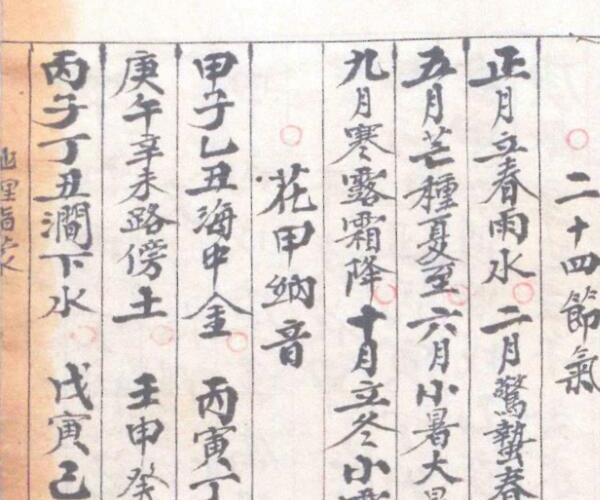 二十四節氣
正月立春雨水 二月驚蟄春
五月芒種夏至 六月小暑大暑
九月寒露霜降 十月立冬小雪
花甲納音
甲子乙丑海中金 丙寅丁
庚午辛未路傍土 壬申癸
丙子丁丑澗下水 戊寅己
地理指